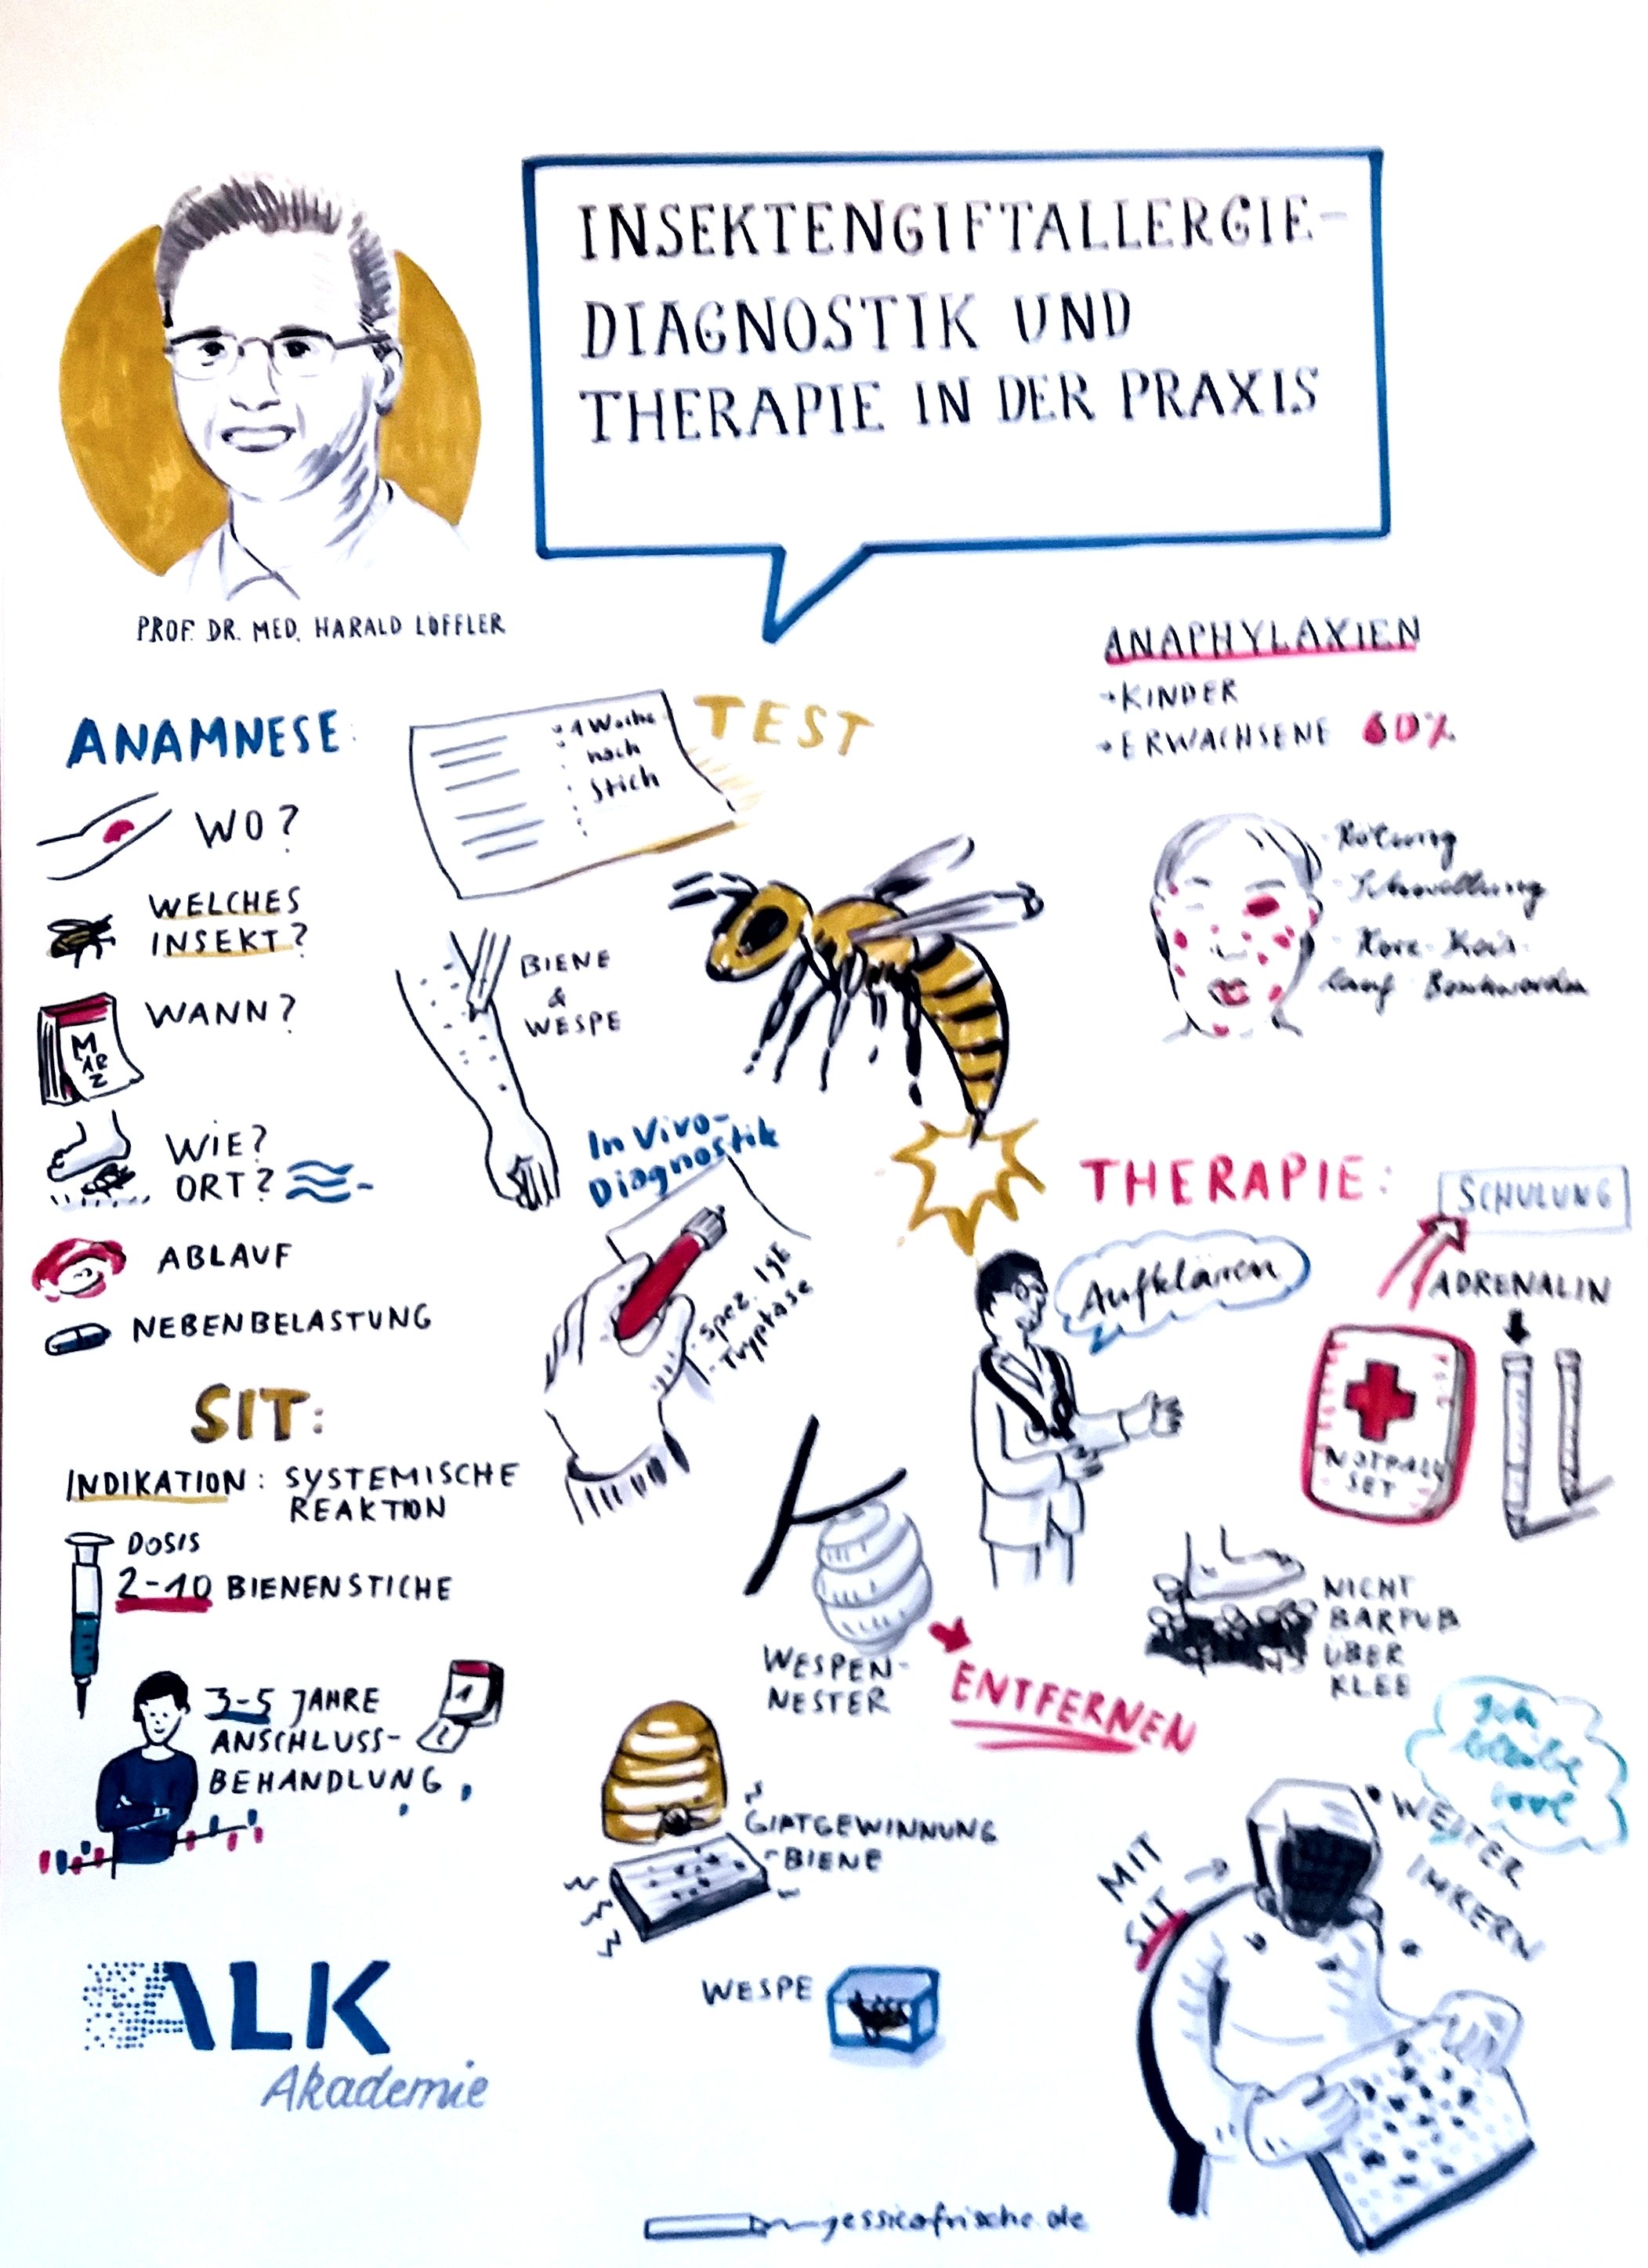 INSEKTENGIFTALLERGIE-
DIAGNOSTIK UND
THERAPIE IN DER PRAXIS
PROF. DR. MED. HARALD LÖFFLER
ANAMNESE:
WO?
WELCHES
INSEKT?
WANN?
MÄRZ
WIE?
ORT?
ABLAUF
NEBENBELASTUNG
TEST
1 Woche
nach
Stich
BIENE
&
WESPE
In Vivo-
Diagnostik
- spez. IgE
- Tryptase
ANAPHYLAXIEN
→KINDER
→ERWACHSENE 60%
- Rötung
- Schwellung
THERAPIE:
SCHULUNG
Aufklären
ADRENALIN
NOTFALL
SET
NICHT
BARFUß
ÜBER
KLEE
WESPEN-
NESTER
ENTFERNEN
SIT:
INDIKATION: SYSTEMISCHE
REAKTION
DOSIS
2-10 BIENENSTICHE
3-5 JAHRE
ANSCHLUSS-
BEHANDLUNG
1
GIFTGEWINNUNG
-BIENE
WESPE
MIT
SIT
WEITER
IMKERN
ALK
Akademie
jessicafrische.de